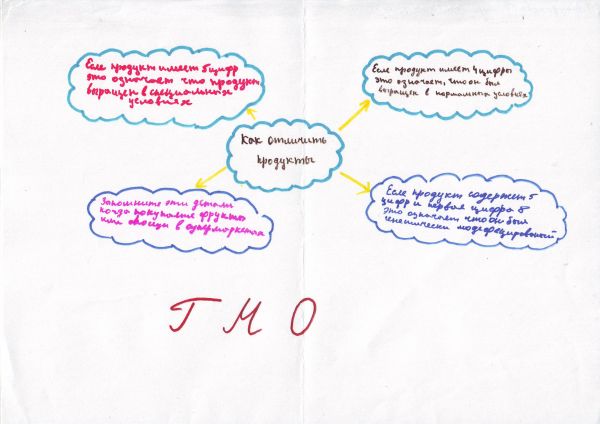 Если продукт имеет 5 цифр
это означает что продукт
выращен в специальных
условиях
Если продукт имеет 4 цифры
это означает, что он был
выращен в нормальных условиях
Как отличить
продукты
Запомните эти детали
когда покупаете фрукты
или овощи в супермаркетах
Если продукт содержет 5
цифр и первая цифра 8
это означает что он был
генетически модефицированный
ГМО